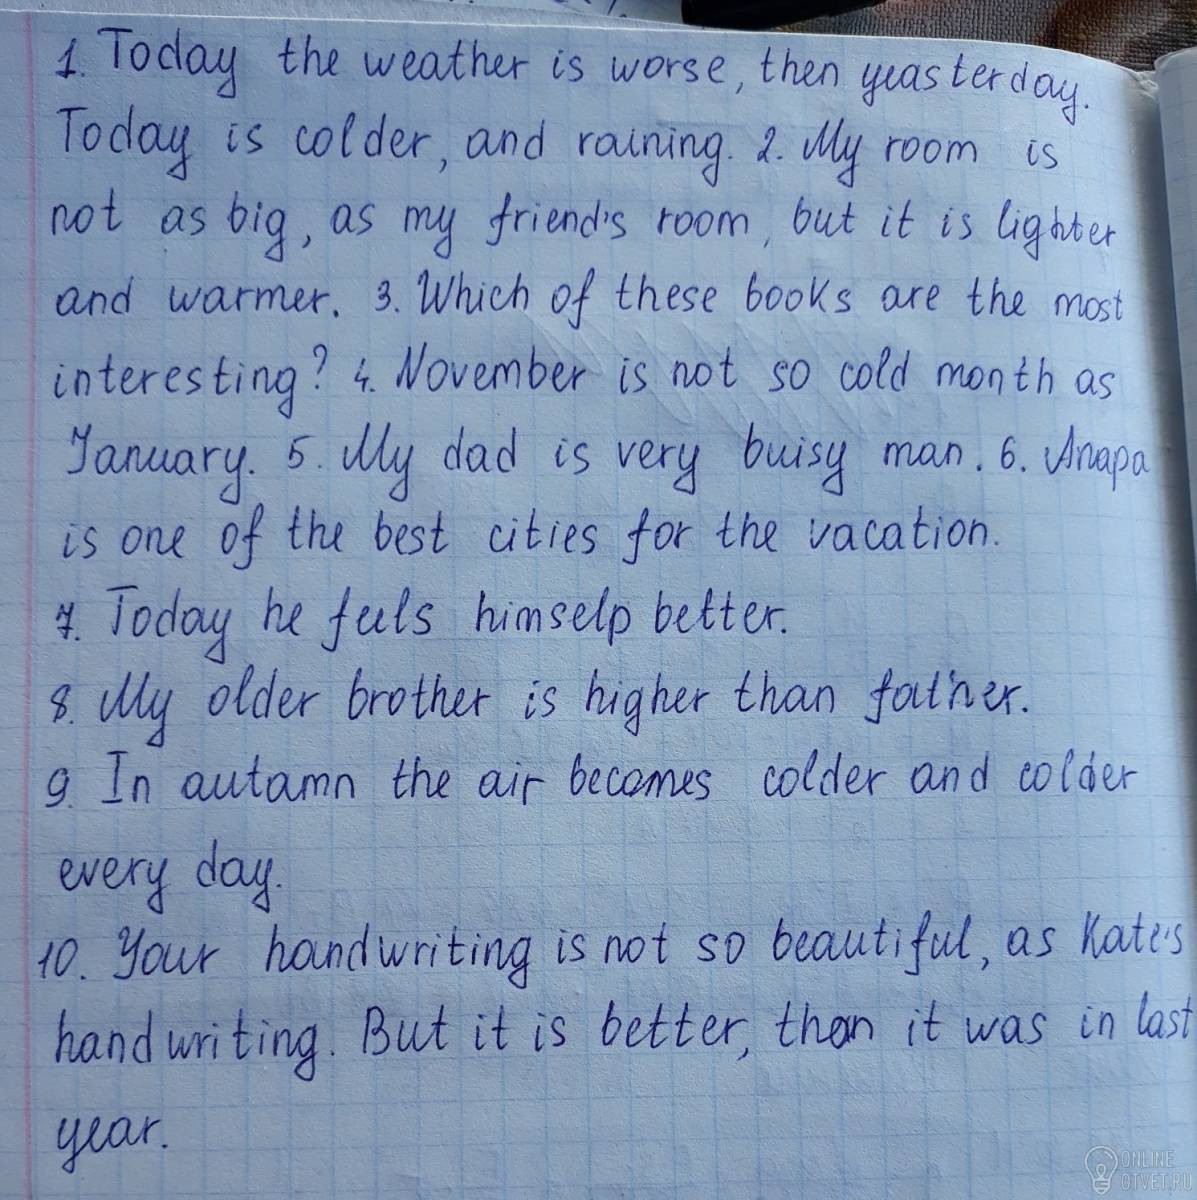 1. Today the weather is worse, then yeasterday.
Today is colder, and raining. 2. My room is
not as big, as my friend's room, but it is lighter
and warmer. 3. Which of these books are the most
interesting? 4. November is not so cold month as
January. 5. My dad is very buisy man. 6. Anapa
is one of the best cities for the vacation.
7. Today he feels himselp better.
8. My older brother is higher than father.
9. In autamn the air becomes colder and colder
every day.
10. Your handwriting is not so beautiful, as Kate's
handwriting. But it is better, than it was in last
year.
ONLINE
OTVET.RU